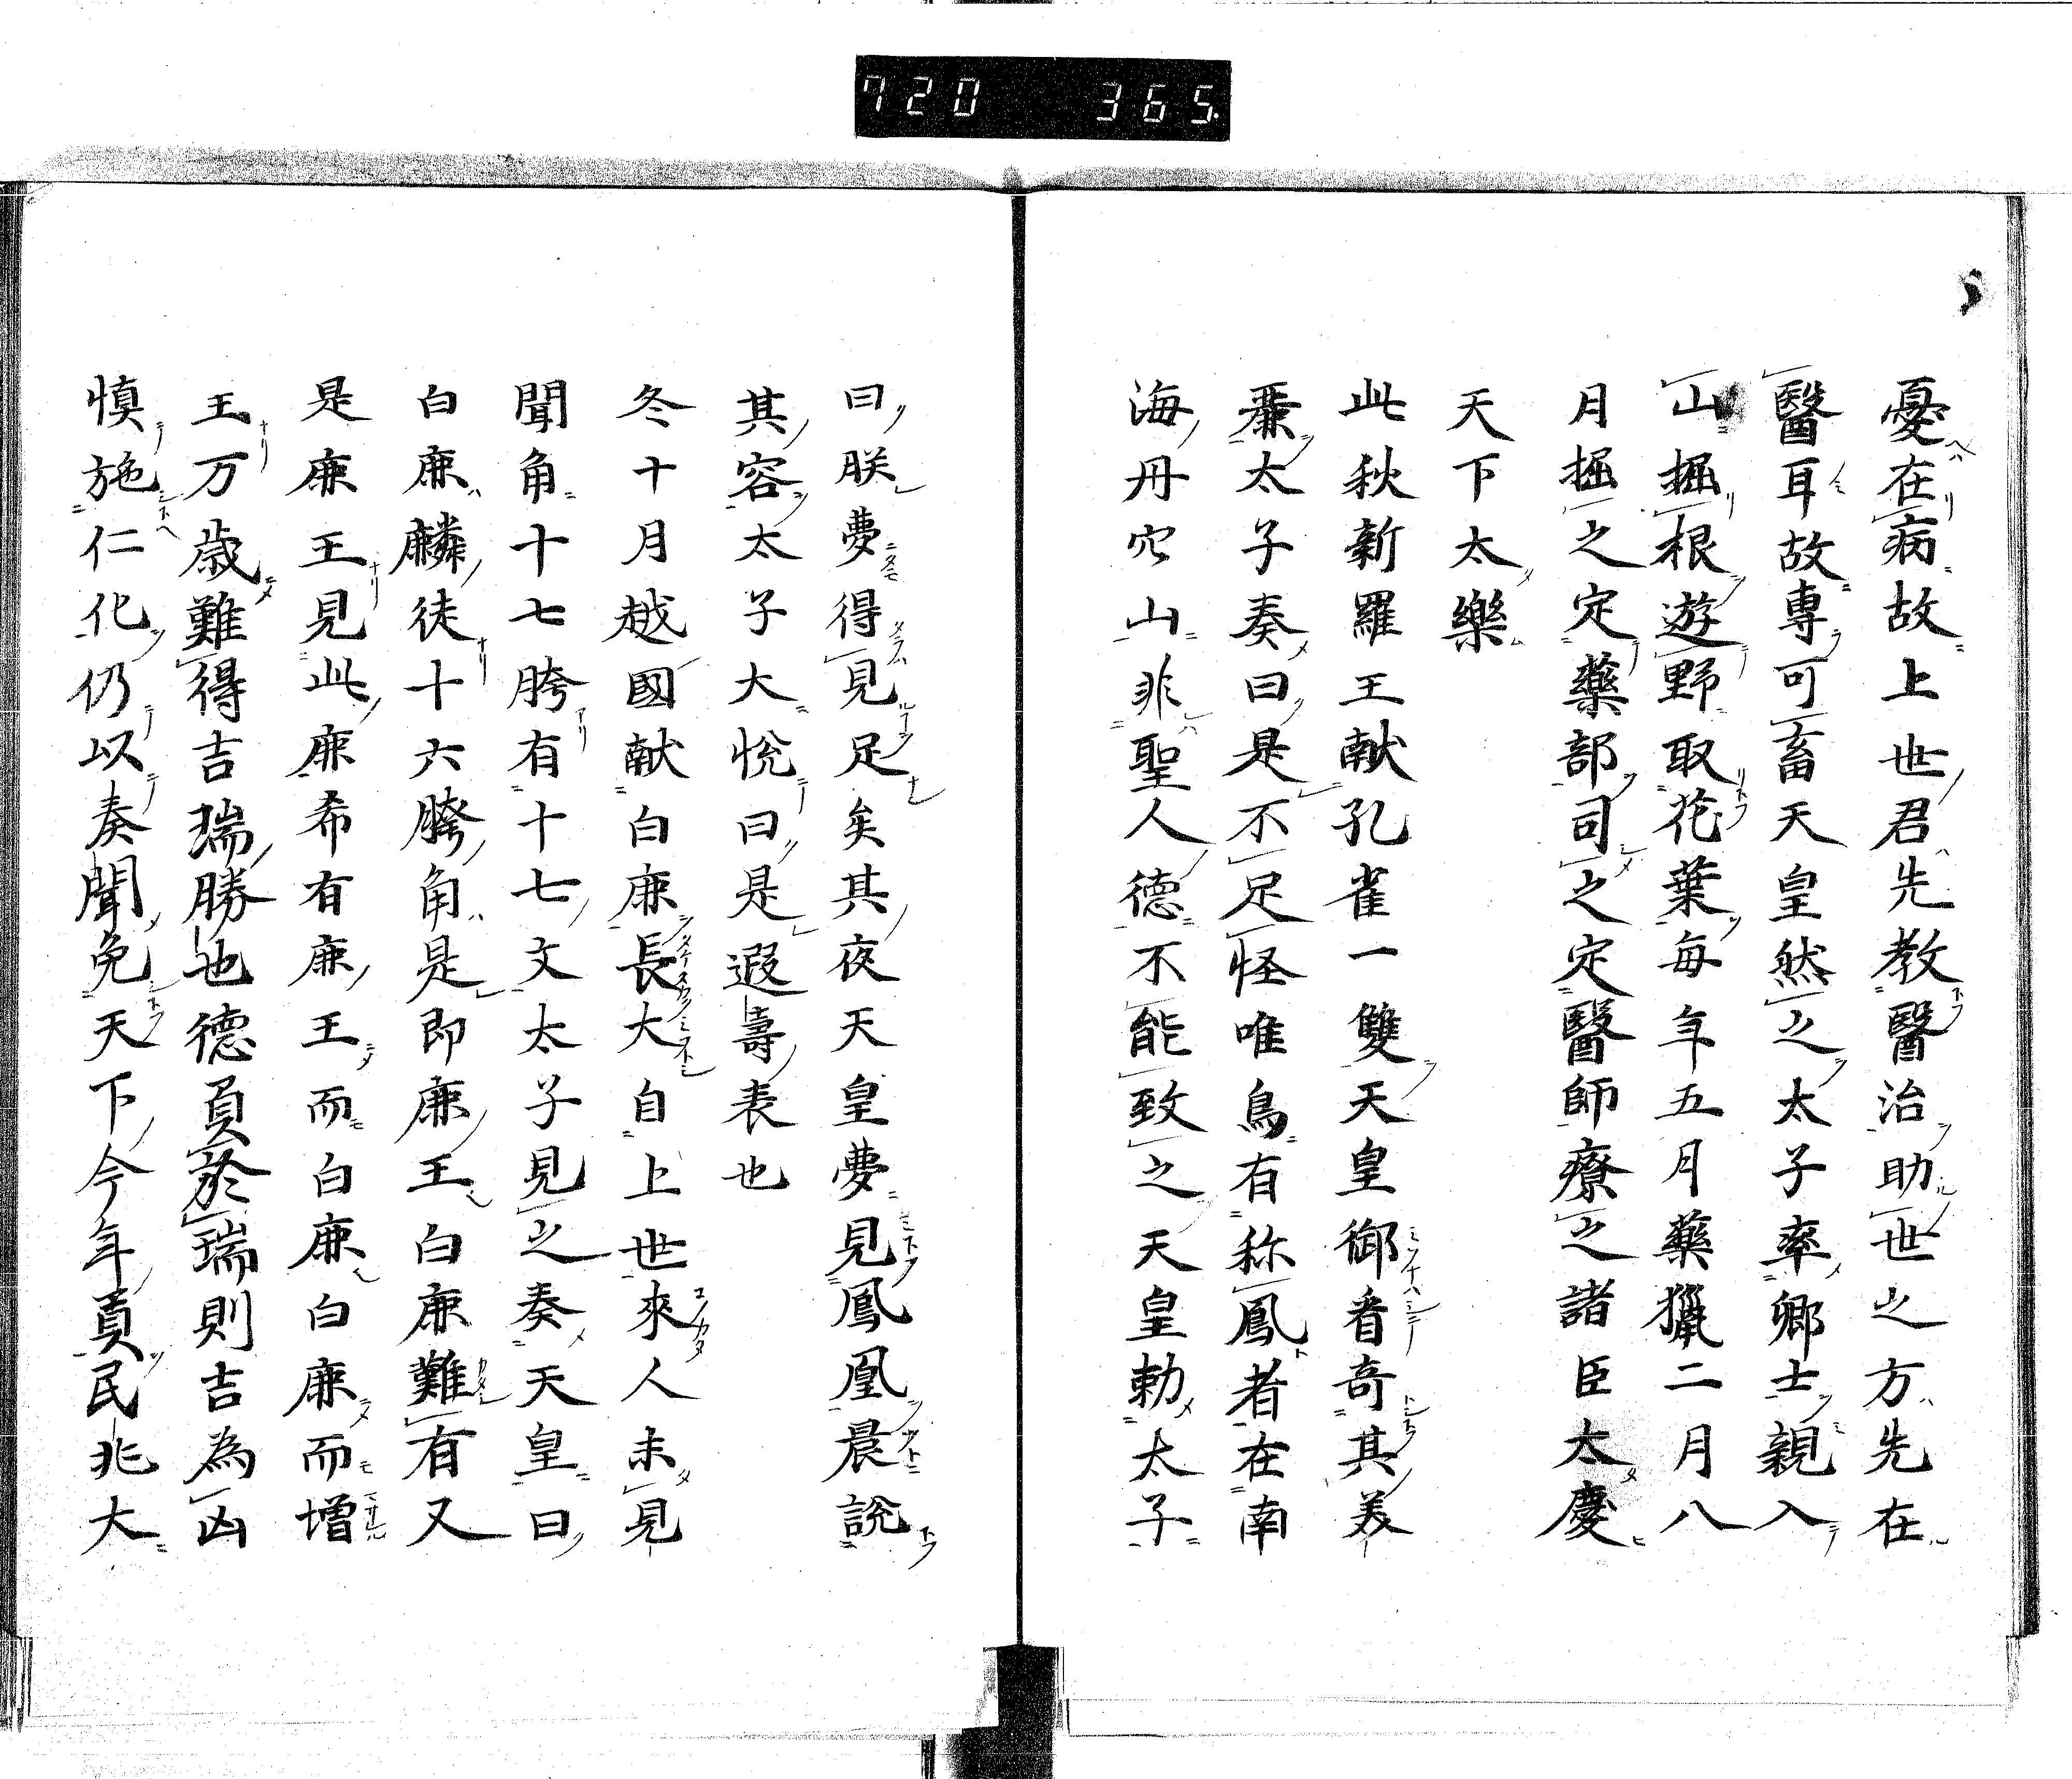 720 365
憂在病故上世君先教醫治助世之方先在
醫耳故専可畜天皇然之太子率卿士親入
山掘根遊野取花葉毎年五月藥獵二月八
月掘之定藥部司之定醫師療之諸臣太慶
天下太樂
此秋新羅王献孔雀一雙天皇御看奇其美
麁太子奏曰是不足怪唯鳥有称鳳者在南
海丹穴山非聖人德不能致之天皇勅太子
曰朕夢得見足矣其夜天皇夢見鳳凰晨説
其容太子大悦曰是遐壽表也
冬十月越國献白麃長大自上世來人未見
聞角十七胯有十七文太子見之奏天皇曰
白麃麟徒十六胯角是即麃王白麃難有又
是麃王見此麃希有麃王而白麃白麃而増
王万歳難得吉瑞勝也德負於瑞則吉為凶
慎施仁化仍以奏聞免天下今年貢民兆大